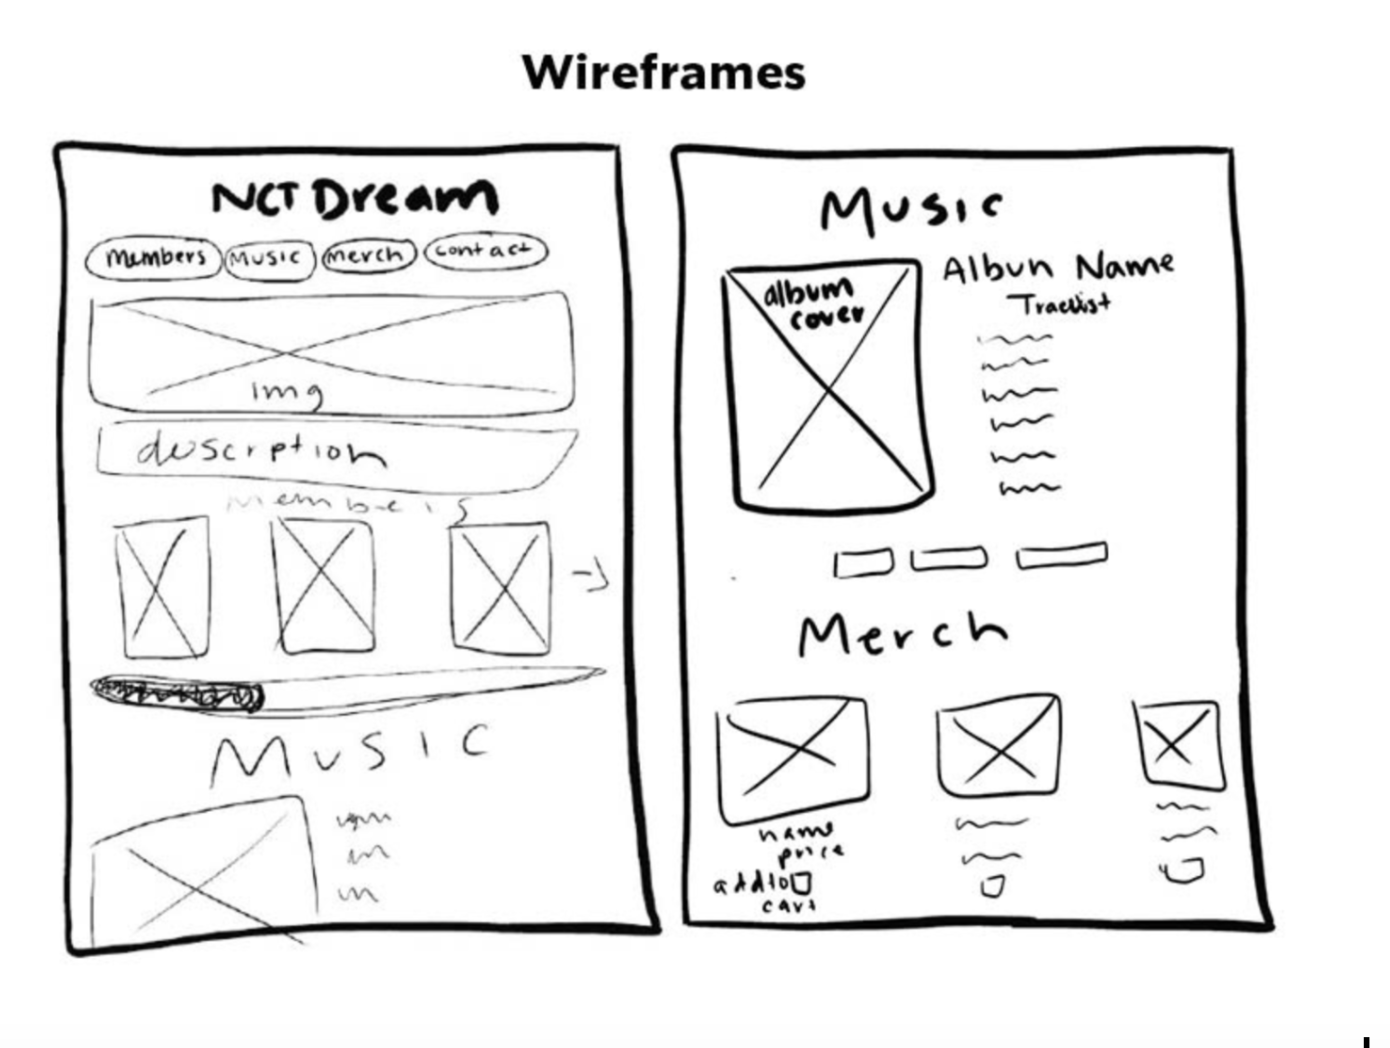 Wireframes
NCT Dream
Members Music Merch Contact
img
description
Members
Music
Music
album
cover
Album Name
Tracklist
Merch
name
price
add to
cart